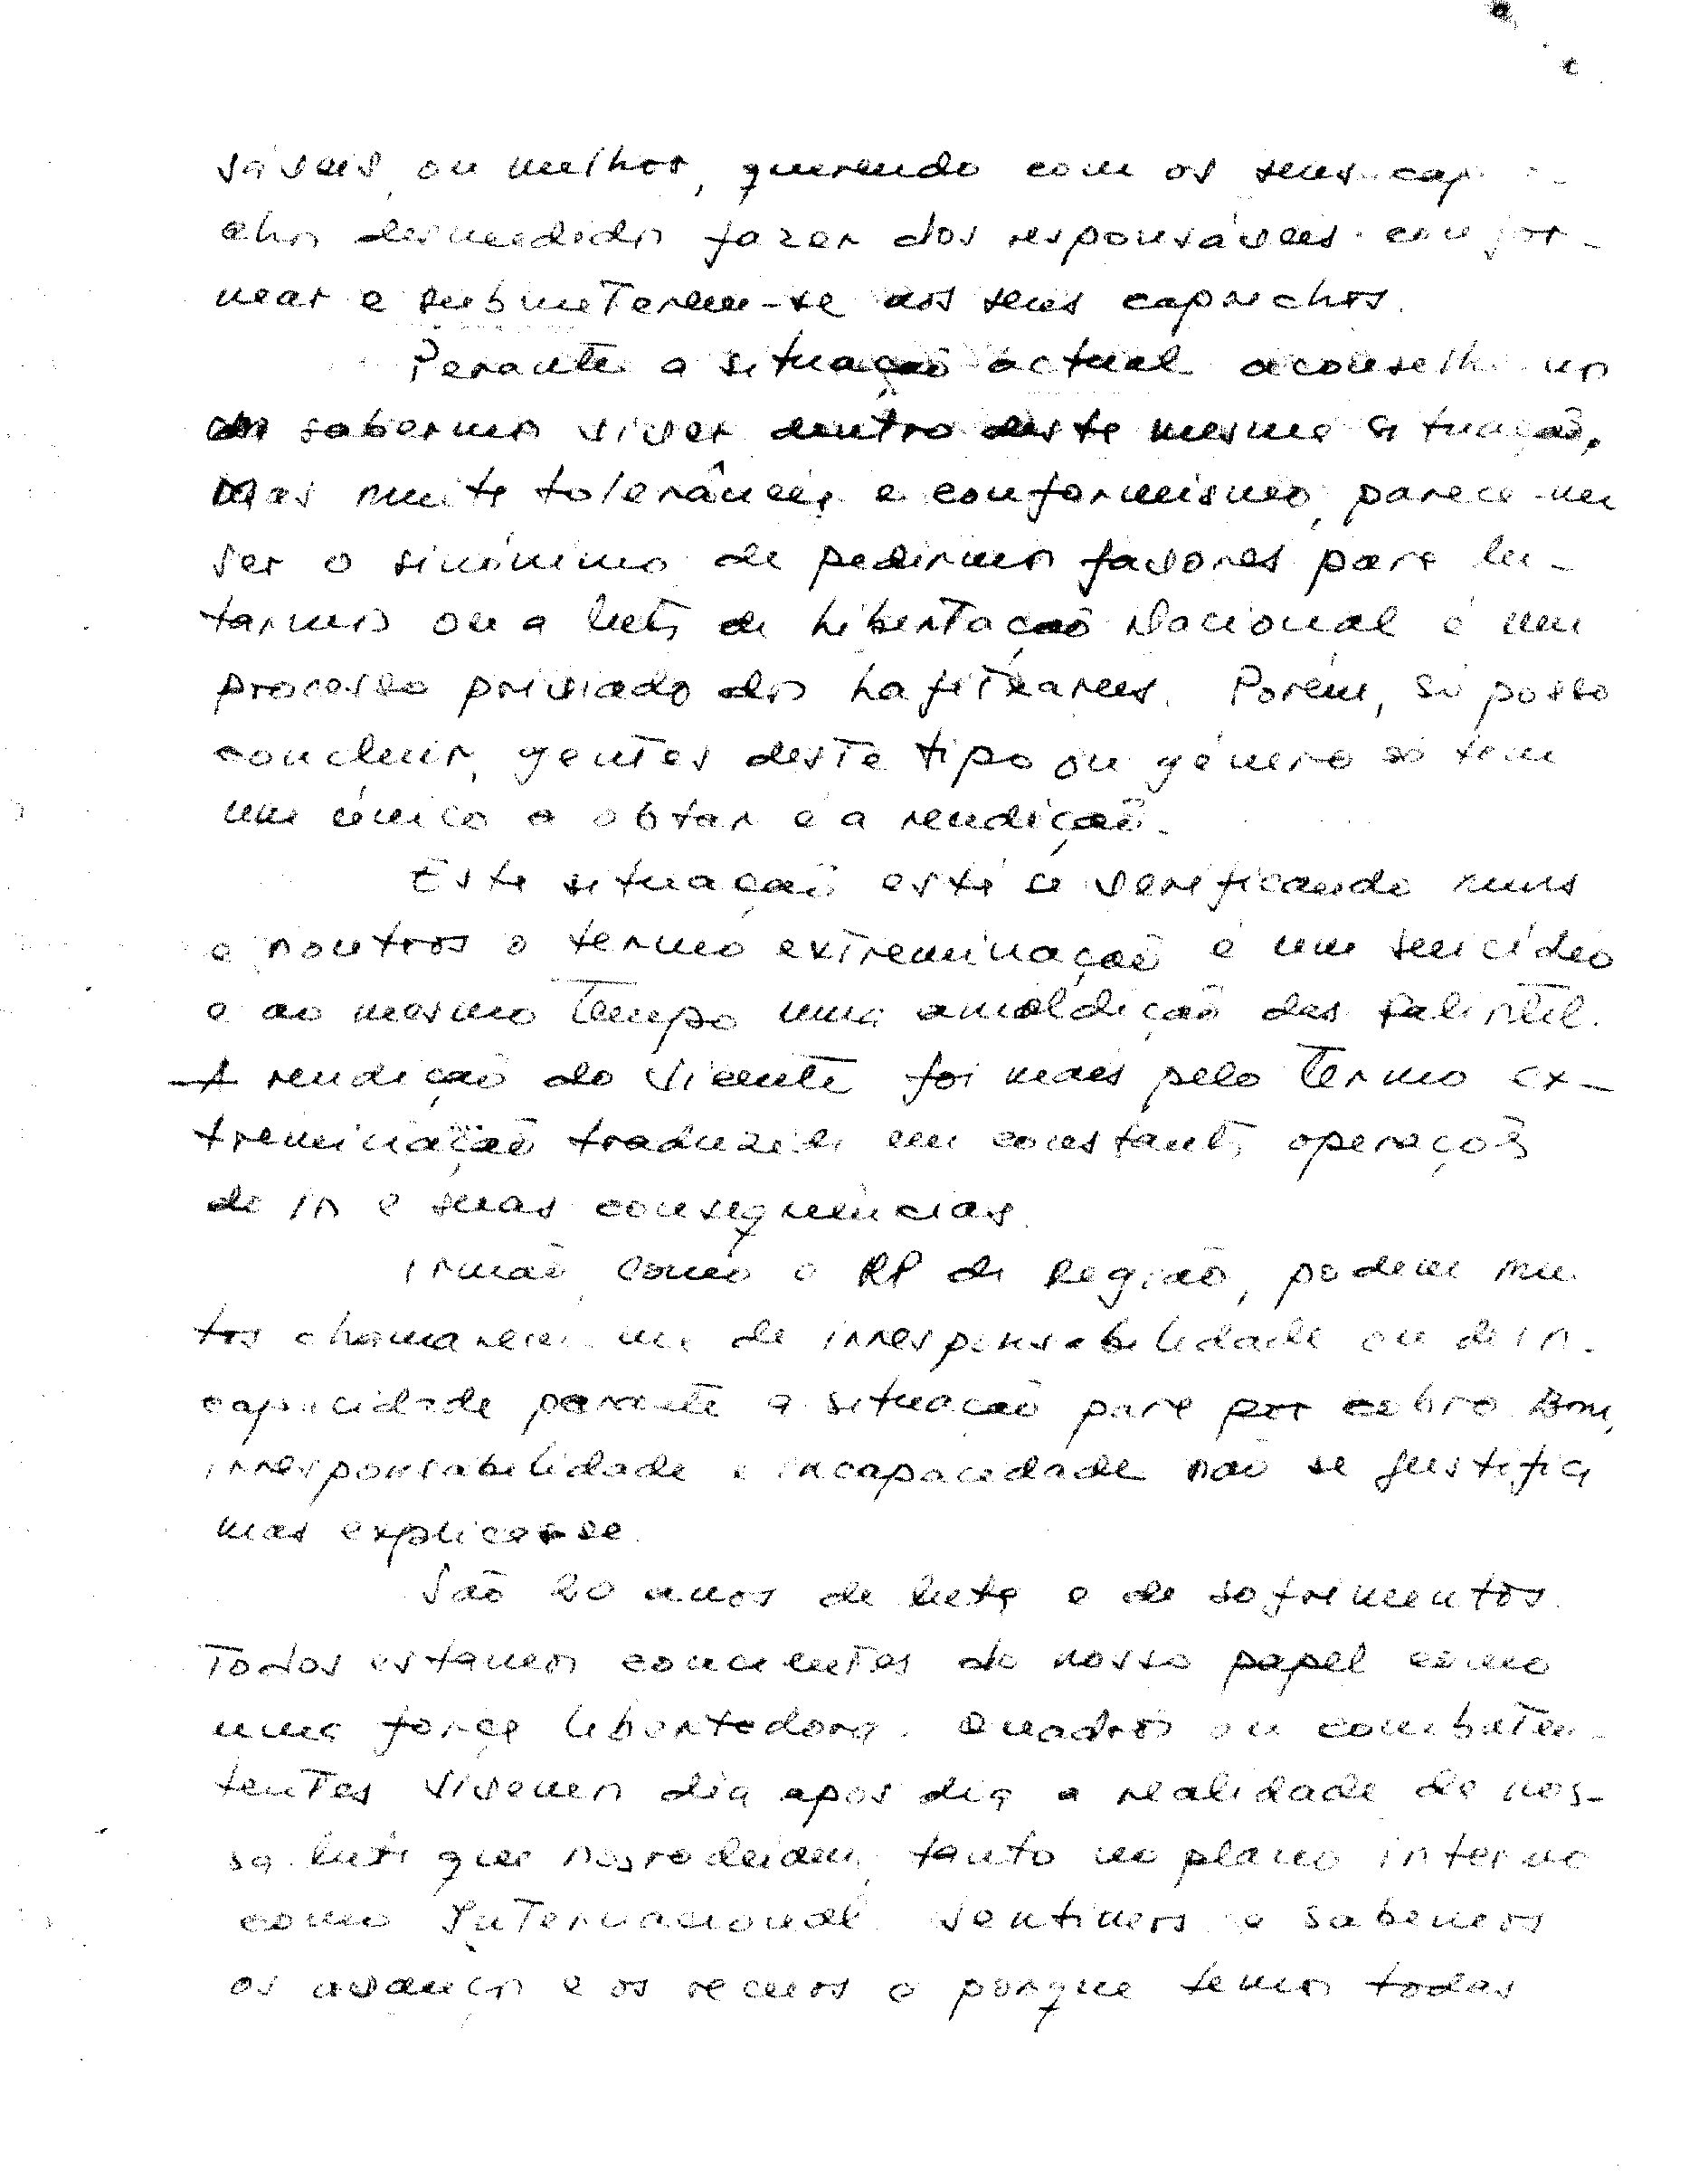 sáveis, ou melhor, querendo com os seus cap
chos desmedidos fazer dos responsáveis confor-
mear e submeterem-se aos seus caprichos.
Perante a situação actual aconselh nos
de sabermos viver dentro deste mesma situação.
Mas muita tolerância e conformismo, parece-me
ser o sinónimo de pedirmos favores para lu-
tarmos ou a luta de Libertação Nacional é um
processo privado dos. Porém, só posso
concluir, gentes deste tipo ou género só tem
um único a obtar é a rendição.
Esta situação está se verificando nuns
e noutros o termo extreminação é um suicídio
e ao mesmo tempo uma amaldição das Falintil.
A rendição do Vicente foi mais pelo termo ex-
treminação traduzida em constants operações
de in e suas consequências.
Irmão, como o RP da Região, podem mui
tos chamarem-me de irresponsabilidade ou de in-
capacidade perante a situação para por cobro. Bom,
irresponsabilidade e incapacidade não se justifica
mas explica-se.
São 20 anos de luta e de sofrimentos.
Todos estamos concientes do nosso papel como
uma força libertadora. Quadros ou combaten-
tentes vivemos dia apos dia a realidade de nos-
sa luta que nos rodeiam, tanto no plano interno
como Internacional. Sentimos e sabemos
os avanços e os recuos e porque temos todas